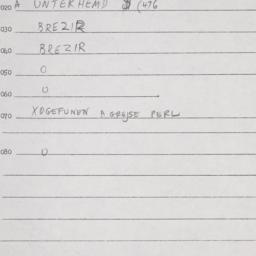 020 A UNTERHEMD $ (476
030 BREZIR
040 BREZIR
050 0
060 0
070 XOGEFUNEN A GREJSE PERL
080 0